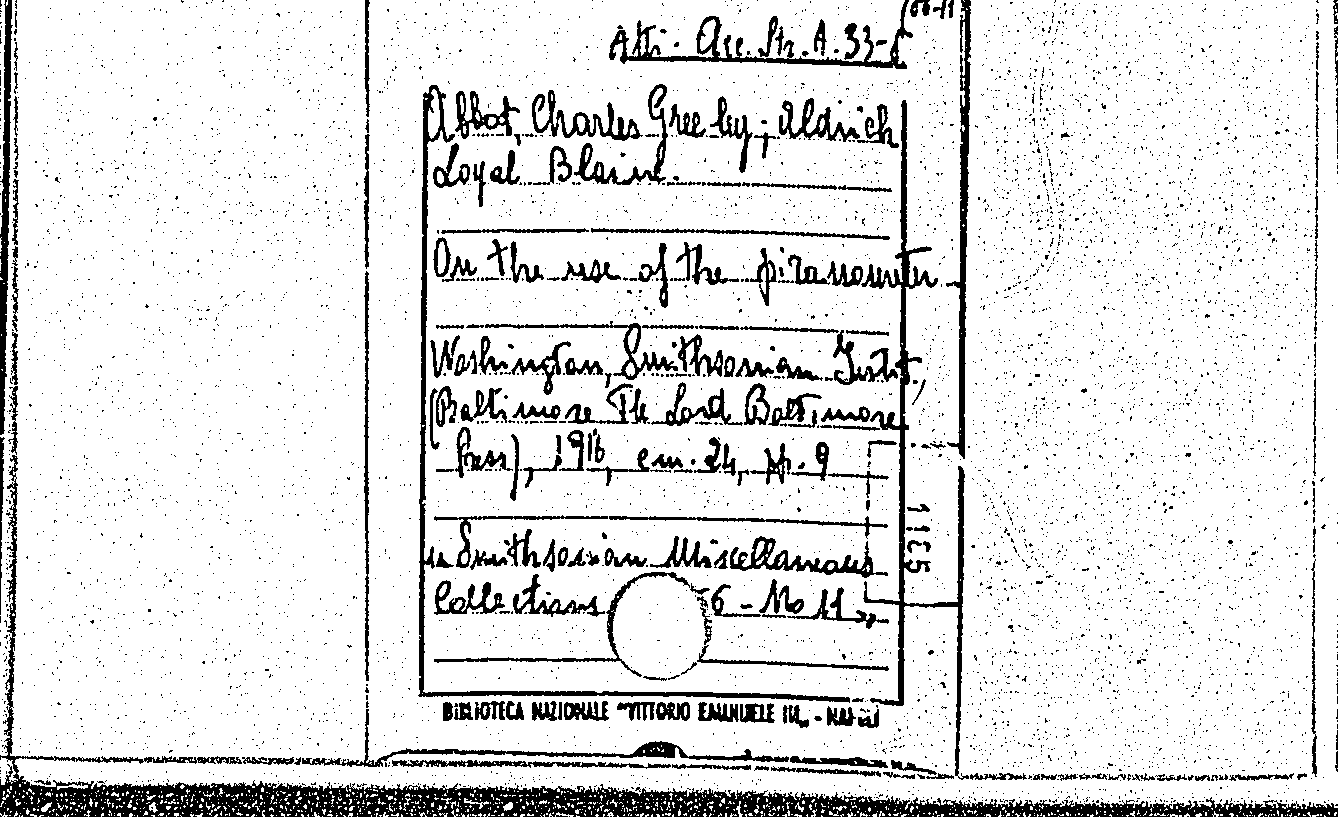 (66-11
Atti. Acc. Str. A. 33-
Abbot, Charles Greeley; Aldrich
Loyal Blaine.
On the use of the piranometer
Washington, Smithsonian Instit.,
(Baltimore The Lord Baltimore
Press), 1916, cm. 24, pp. 9
in Smithsonian Miscellaneous
Collections 56 - No 11 »,
1165
BIBLIOTECA NAZIONALE "VITTORIO EMANUELE III„ - NAPOLI